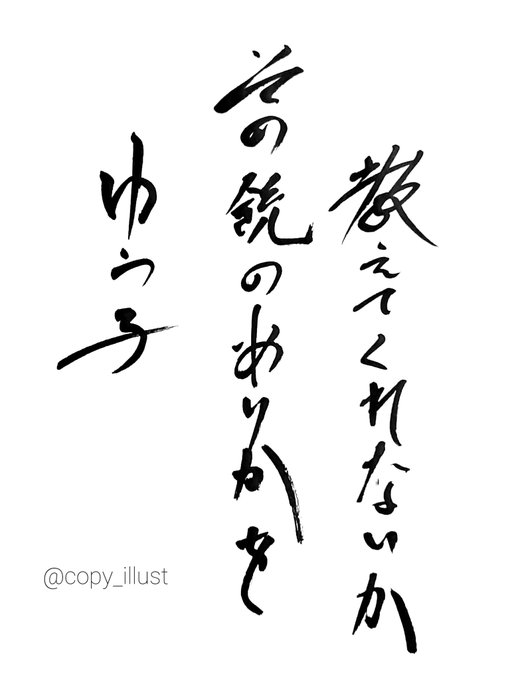 教えてくれないか
その銃のありかを
ゆう子
@copy_illust